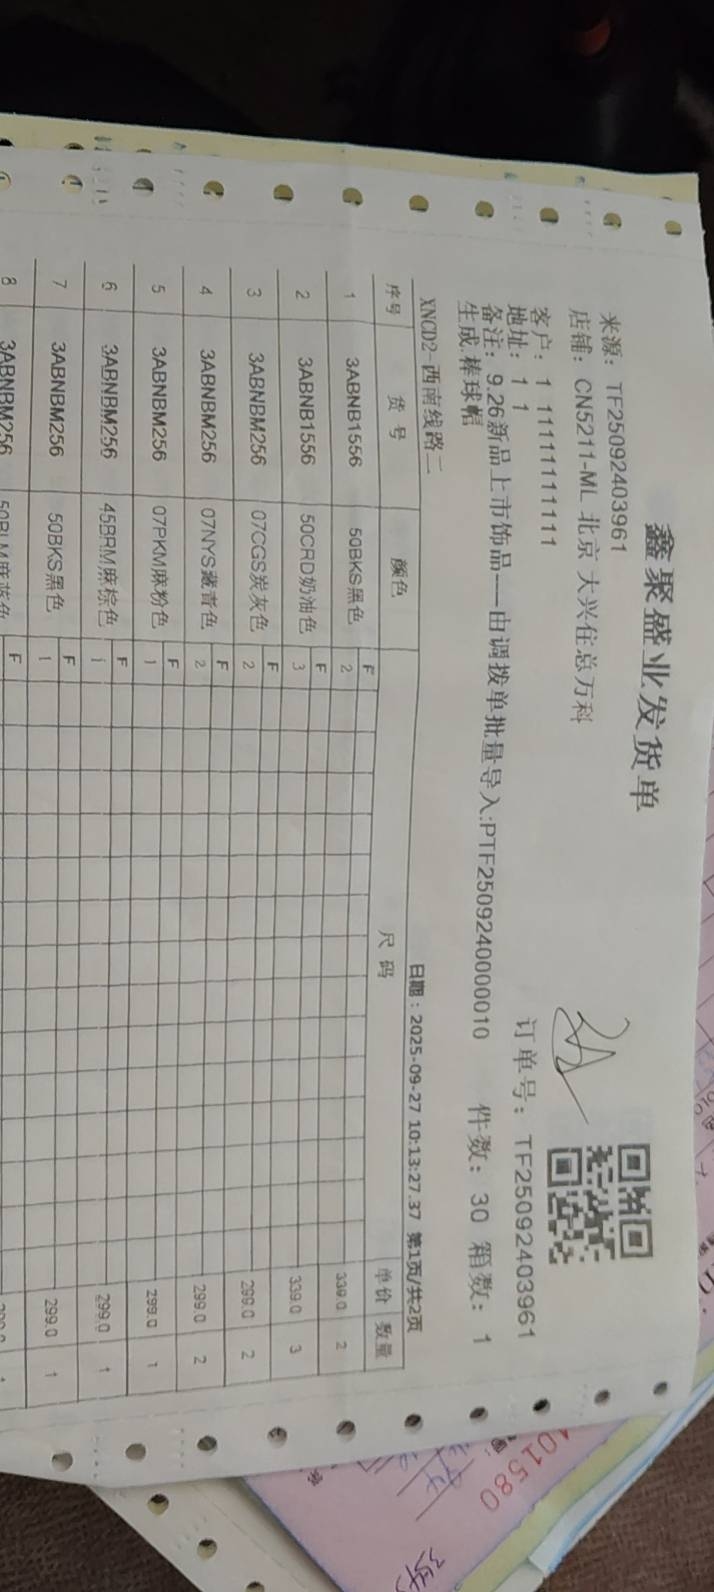 鑫聚盛业发货单
来源：TF25092403961
店铺：CN5211-ML 北京 大兴住总万科
客户：1 11111111111
订单号：TF25092403961
地址：1 1
备注：9.26新品上市饰品——由调拨单批量导入:PTF2509240000010 件数：30 箱数：1
生成.棒球帽
XNCD2-西南线路二
日期：2025-09-27 10:13:27.37 第1页/共2页
序号 货号 颜色 尺码 单价 数量
1 3ABNB1556 50BKS黑色 F 2 339.0 2
2 3ABNB1556 50CRD奶油色 F 3 339.0 3
3 3ABNBM256 07CGS炭灰色 F 2 299.0 2
4 3ABNBM256 07NYS藏青色 F 2 299.0 2
5 3ABNBM256 07PKM麻粉色 F 1 299.0 1
6 3ABNBM256 45BRM麻棕色 F 1 299.0 1
7 3ABNBM256 50BKS黑色 F 1 299.0 1
8 3ABNBM256 F
101580